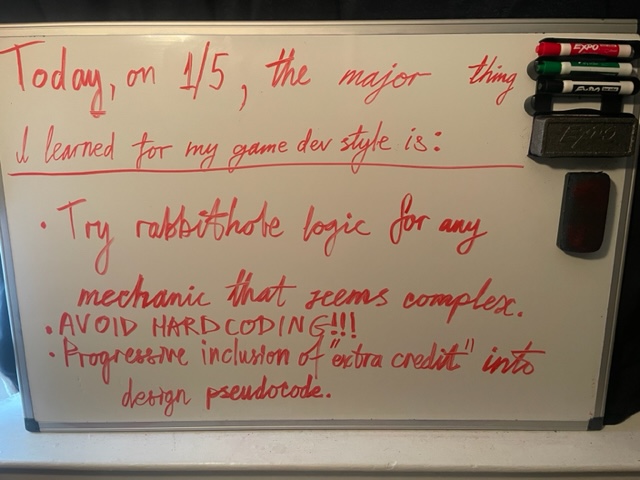 Today, on 1/5, the major thing
I learned for my game dev style is:
• Try rabbithole logic for any
mechanic that seems complex.
• AVOID HARDCODING!!!
• Progressive inclusion of "extra credit" into
design pseudocode.
EXPO
EXPO